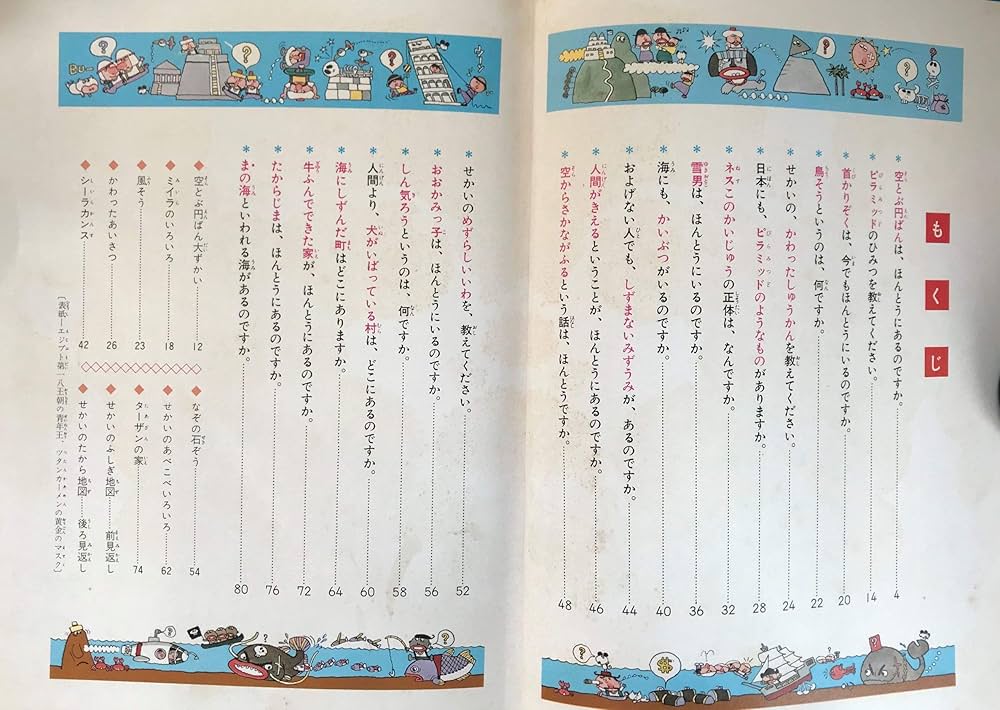 もくじ
空とぶ円ばんは、ほんとうにあるのですか。 4
ピラミッドのひみつを教えてください。 14
首かりぞくは、今でもほんとうにいるのですか。 20
鳥そうというのは、何ですか。 22
せかいの、かわったしゅうかんを教えてください。 24
日本にも、ピラミッドのようなものがありますか。 28
ネスこのかいじゅうの正体は、なんですか。 32
雪男は、ほんとうにいるのですか。 36
海にも、かいぶつがいるのですか。 40
およげない人でも、しずまないみずうみが、あるのですか。 44
人間がきえるということが、ほんとうにあるのですか。 46
空からさかながふるという話は、ほんとうですか。 48
せかいのめずらしいいわを、教えてください。 52
おおかみっ子は、ほんとうにいるのですか。 56
しん気ろうというのは、何ですか。 58
人間より、犬がいばっている村は、どこにあるのですか。 60
海にしずんだ町はどこにありますか。 64
牛ふんでできた家が、ほんとうにあるのですか。 72
たからじまは、ほんとうにあるのですか。 76
まの海といわれる海があるのですか。 80
空とぶ円ばん大ずかい 12
ミイラのいろいろ 18
風そう 23
かわったあいさつ 26
シーラカンス 42
なぞの石ぞう 54
せかいのあべこべいろいろ 62
ターザンの家 74
せかいのふしぎ地図 前見返し
せかいのたから地図 後ろ見返し
〔表紙―エジプト第一八王朝の青年王・ツタンカーメンの黄金のマスク〕